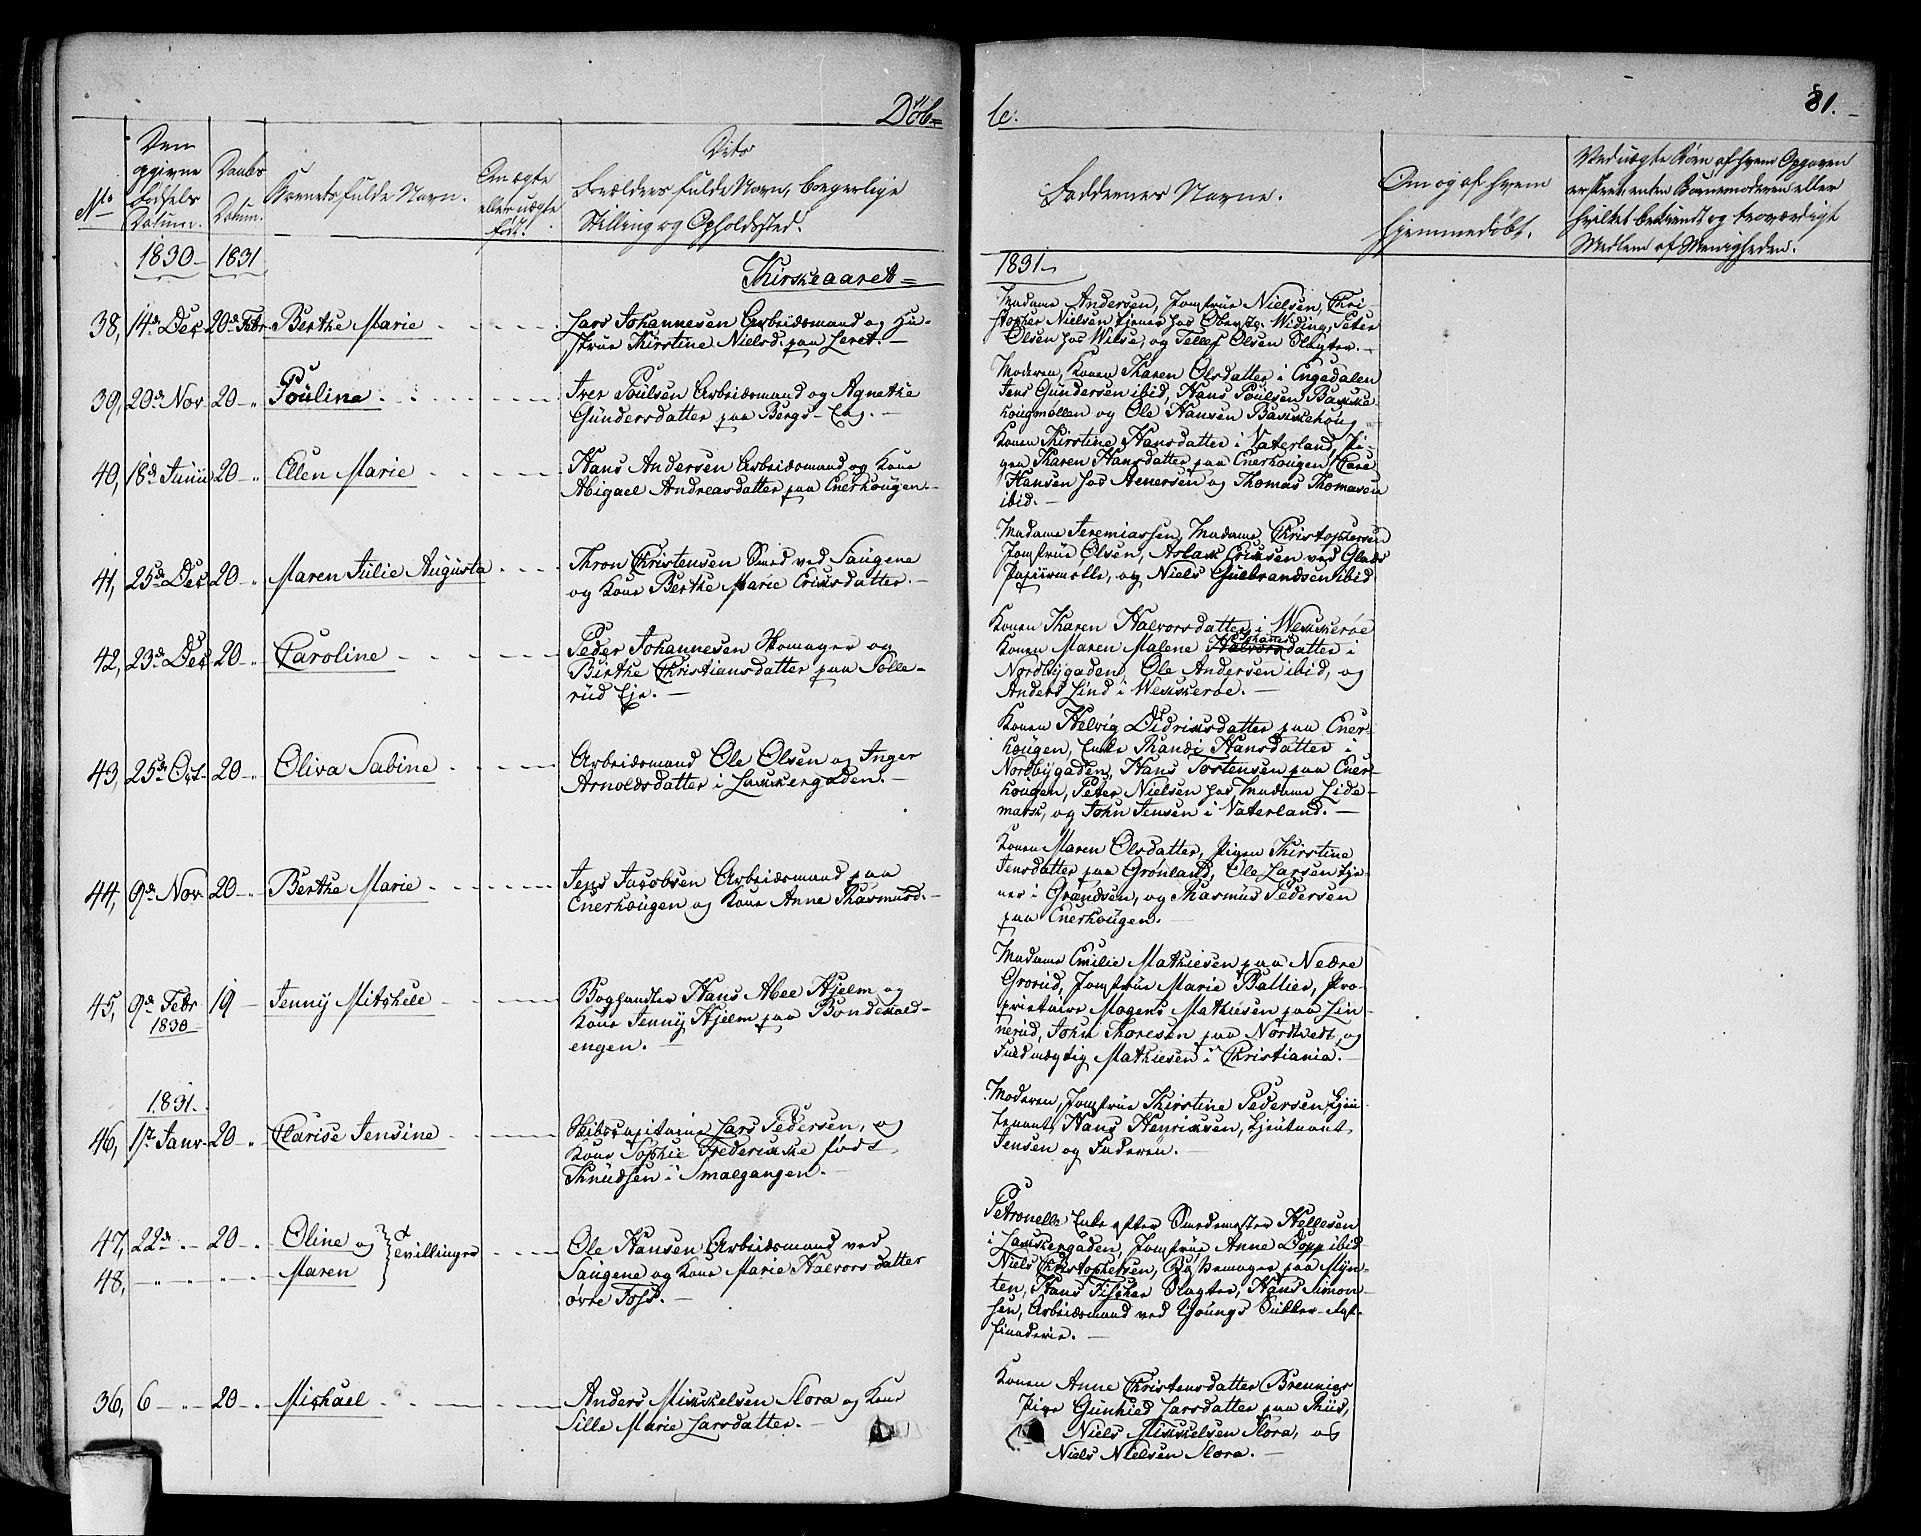 Døb=
te.
81.
No
Den opgivne Fødsels Datum.
Daabs Datum.
Barnets fulde Navn.
Om ægte eller uægte født.
Dets Forældres fulde Navn, borgerlige Stilling og Opholdssted.
Faddernes Navne.
Om og af hvem hjemmedøbt.
Ved uægte Børn af hvem Opgaven er skeet, enten Barnemoderen eller hvilket bekiendt og troværdigt Medlem af Menigheden.
1830 1831
Kirkeaaret=
1831
38, 14de Dec 20de Febr. Berthe Marie
Lars Johannesen Arbeidsmand og Hu-
strue Kirstine Nielsd. paa Leret.
Madame Andersen, Jomfrue Nielsen, Chri-
stopher Nielsen tjener hos Oberstl. Widing, Peter
Olsen hos Wilse, og Tellef Olsen Slagter.
39, 20de Nov 20 Poulina
Iver Poulsen Arbeidsmand og Agnethe
Gundersdatter paa Bergs-Eng.
Moderen, Konen Karen Olsdatter i Engedalen
Jens Gundersen ibid, Hans Poulsen Bakke-
hougmøllen og Ole Hansen Bakkehoug
40, 18de Junii 20 Ellen Marie
Hans Andersen Arbeidsmand og Kone
Abigael Andreasdatter paa Enerhougen.
Konen Kirstine Hansdatter i Vaterland, Pi-
gen Karen Hansdatter paa Enerhougen, Care
Hansen hos Aenersen og Thomas Thomasen
ibid.
41, 25de Dec 20 Maren Julie Augusta
Thron Christensen Smed ved Saugene
og Kone Berthe Marie Eriksdatter.
Madame Jeremiassen, Madame Christophersen
Jomfrue Olsen, Aslak Eriksen ved Glads
Papiirmølle, og Niels Gulbrandsen ibid
42, 23de Dec 20 Caroline
Peder Johannesen Skomager og
Birthe Christiansdatter paa Tolle-
rud Eje.
Konen Karen Halvorsdatter i Wekkerøe
Konen Maren Malene Halvorsdatter i
Nordbygaden, Ole Andersen ibid, og
Anders Lind i Wekkerøe.
43, 25de Oct. 20 Oliva Sabine
Arbeidsmand Ole Olsen og Inger
Arnoldsdatter i Lakkergaden.
Konen Helvig Didriksdatter paa Ener-
hougen, Enke Randi Hansdatter i
Nordbygaden, Hans Torstensen paa Ener-
hougen, Peter Nielsen hos Madame Lide-
mark, og John Jensen i Vaterland.
44, 9de Nov 20 Berthe Marie
Jens Jacobsen Arbeidsmand paa
Enerhougen og Kone Anne Rasmusd.
Konen Maren Olsdatter, Pigen Kirstine
Jensdatter paa Grønland, Ole Larsen tje-
ner i Grændsen, og Rasmus Pedersen
paa Enerhougen.
45, 9de Febr 1830 19 Jenny Mitchele
Boghandler Hans Abel Hjelm og
Kone Jenny Hjelm paa Bondekald-
engen.
Madame Emilie Mathiesen paa Nedre
Grorud, Jomfrue Marie Ballier, Pro-
prietaire Mogens Mathiesen paa Lin-
nerud, John Thoresen paa Nordtvedt, og
Fuldmægtig Mathiesen i Christiania.
1831.
46, 1ste Janr 20 Clarise Jensine
Skibscapitaine Lars Pedersen, og
Kone Sophie Frederikke født
Knudsen i Smalgangen.
Moderen, Jomfrue Kirstine Pedersen, Lieu-
tenant Hans Henriksen, Lieutenant
Jensen og Faderen.
47, 22de 20 Oline og
48, Maren
Tvillinger
Ole Hansen Arbeidsmand ved
Saugene og Kone Marie Halvorsdatter
øvre Foss.
Petronelle Enke efter Smedemester Hellesen
i Lakkergaden, Jomfrue Anne Dopp ibid
Niels Christophersen, Bøssemager paa Myn-
ten, Hans Fischer Slagter, Hans Simon-
sen, Arbeidsmand ved Youngs Sukker-Raf-
finaderie.
36, 6 20 Michael
Anders Mikkelsen Slora og Kone
Sille Marie Larsdatter.
Konen Anne Christensdatter Brennigs
Pige Gunhild Larsdatter paa Ruud,
Niels Mikkelsen Slora, og
Niels Nielsen Slora.